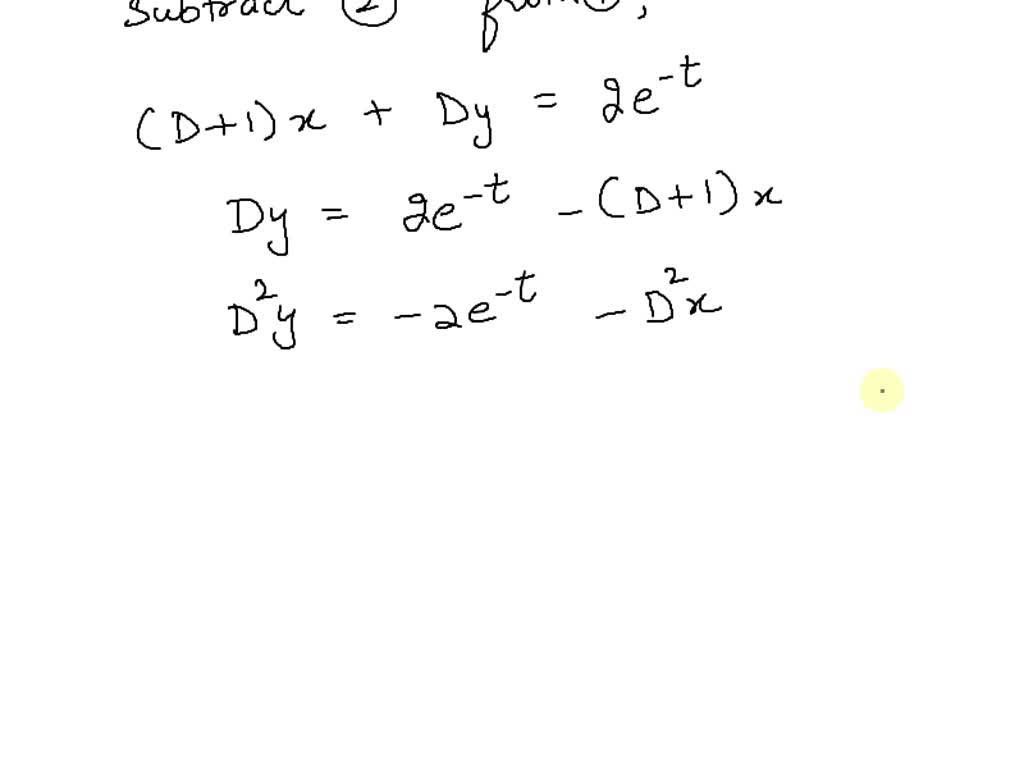 Subtract ② from ①,
(D+1)x + Dy = 2e^{-t}
Dy = 2e^{-t} - (D+1)x
D²y = -2e^{-t} - D²x